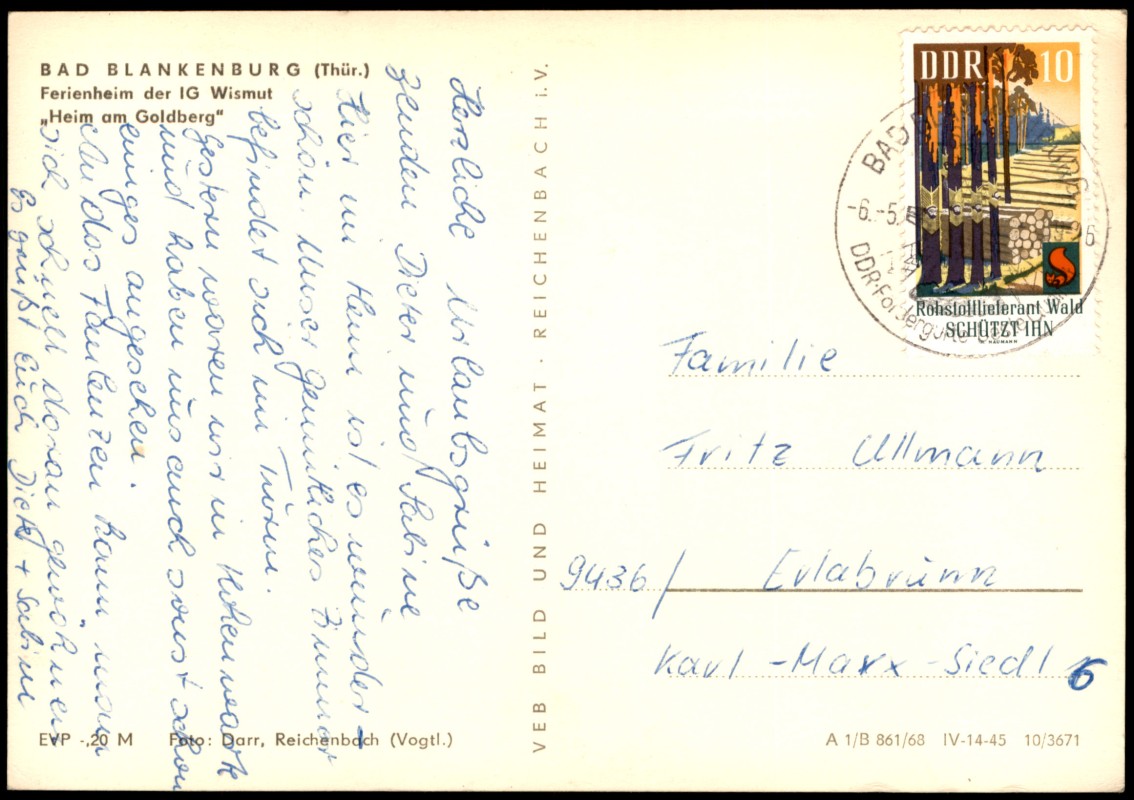 BAD BLANKENBURG (Thür.)
Ferienheim der IG Wismut
„Heim am Goldberg"
Herzliche Urlaubsgrüße
senden Dieter und Sabine
Hier im Heim ist es wunder-
schön. Unser gemütliches Zimmer
befindet sich im Turm.
Gestern waren wir in Hohenwarte
und haben uns auch sonst schon
einiges angesehen.
An das Faulenzen kann man
sich schnell daran gewöhnen
Es grüßt Euch Dieter + Sabine
EVP -,20 M Foto: Darr, Reichenbach (Vogtl.)
VEB BILD UND HEIMAT · REICHENBACH i. V.
DDR 10
Rohstofflieferant Wald
SCHÜTZT IHN
NAUMANN
BAD
-6.-5.
DDR-Förderguts
Familie
Fritz Ullmann
9436 / Erlabrunn
Karl-Marx-Siedl 6
A 1/B 861/68 IV-14-45 10/3671